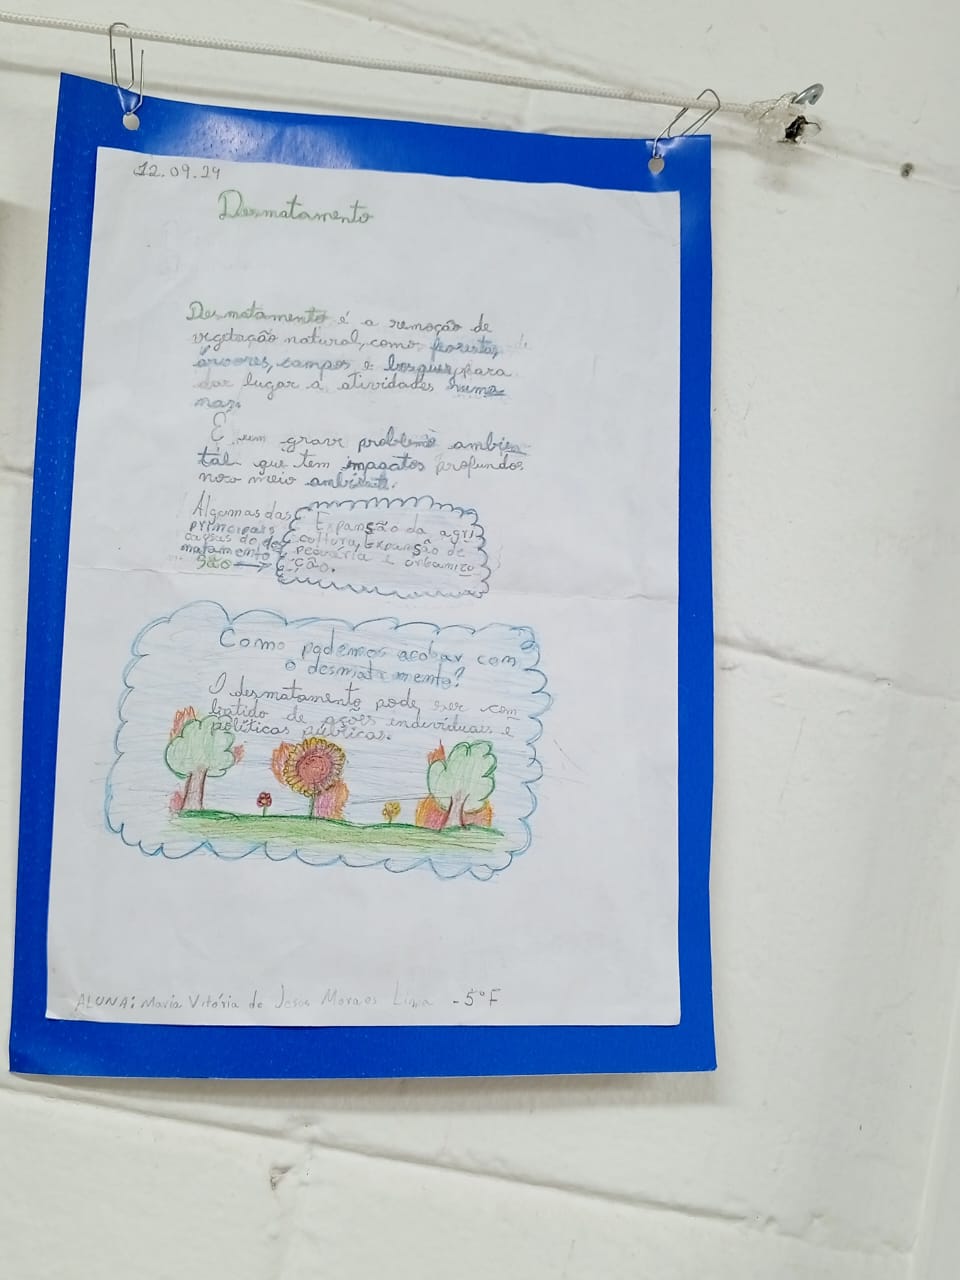 12.09.24
Desmatamento
Desmatamento é a remoção de
vegetação natural, como florestas,
árvores, campos e bosques, para
dar lugar a atividades huma
nas.
É um grave problema ambien
tal que tem impactos profundos
noso meio ambiente.
Algumas das
principais
causas do des
matamento
são
Expansão da agri
cultura, Expansão de
pecuária e urbaniza
ção.
Como podemos acabar com
o desmatamento?
O desmatamento pode ser com
batido de ações individuais e
políticas públicas.
ALUNA: Maria Vitória de Jesus Moraes Lima - 5º F